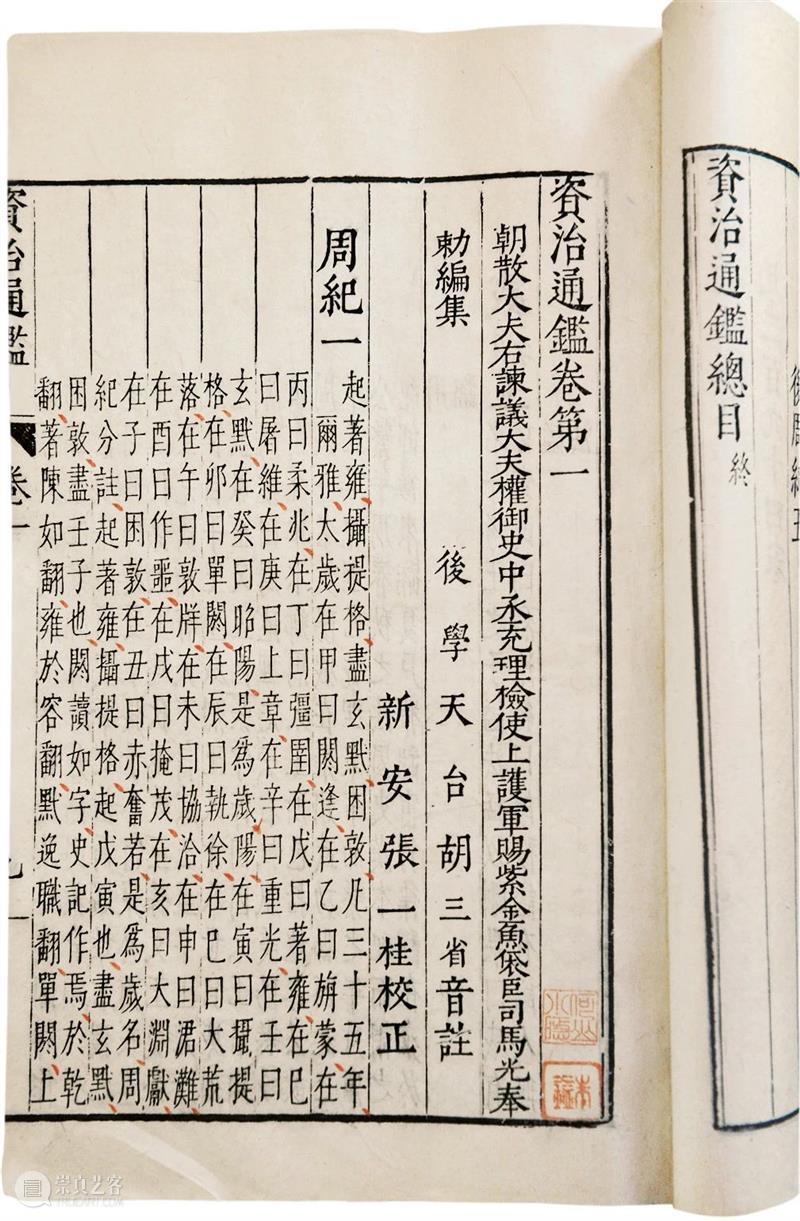 後周紀五
資治通鑑總目 終
資治通鑑卷第一
朝散大夫右諫議大夫權御史中丞充理檢使上護軍賜紫金魚袋臣司馬光奉
勑編集 後學天台胡三省音註
新安張一桂校正
周紀一 起著雍攝提格盡玄黓困敦凡三十五年
爾雅太歲在甲曰閼逢在乙曰旃蒙在
丙曰柔兆在丁曰彊圉在戊曰著雍在巳
曰屠維在庚曰上章在辛曰重光在壬曰
玄黓在癸曰昭陽是爲歲陽在寅曰攝提
格在卯曰單閼在辰曰執徐在巳曰大荒
落在午曰敦牂在未曰協洽在申曰涒灘
在酉曰作噩在戌曰掩茂在亥曰大淵獻
在子曰困敦在丑曰赤奮若是爲歲名周
紀分註起著雍攝提格起戊寅也盡玄黓
困敦盡壬子也閼讀如字史記作焉於乾
翻著陳如翻雍於容翻黓逸職翻單閼上
資治通鑑 卷一
崇真艺客